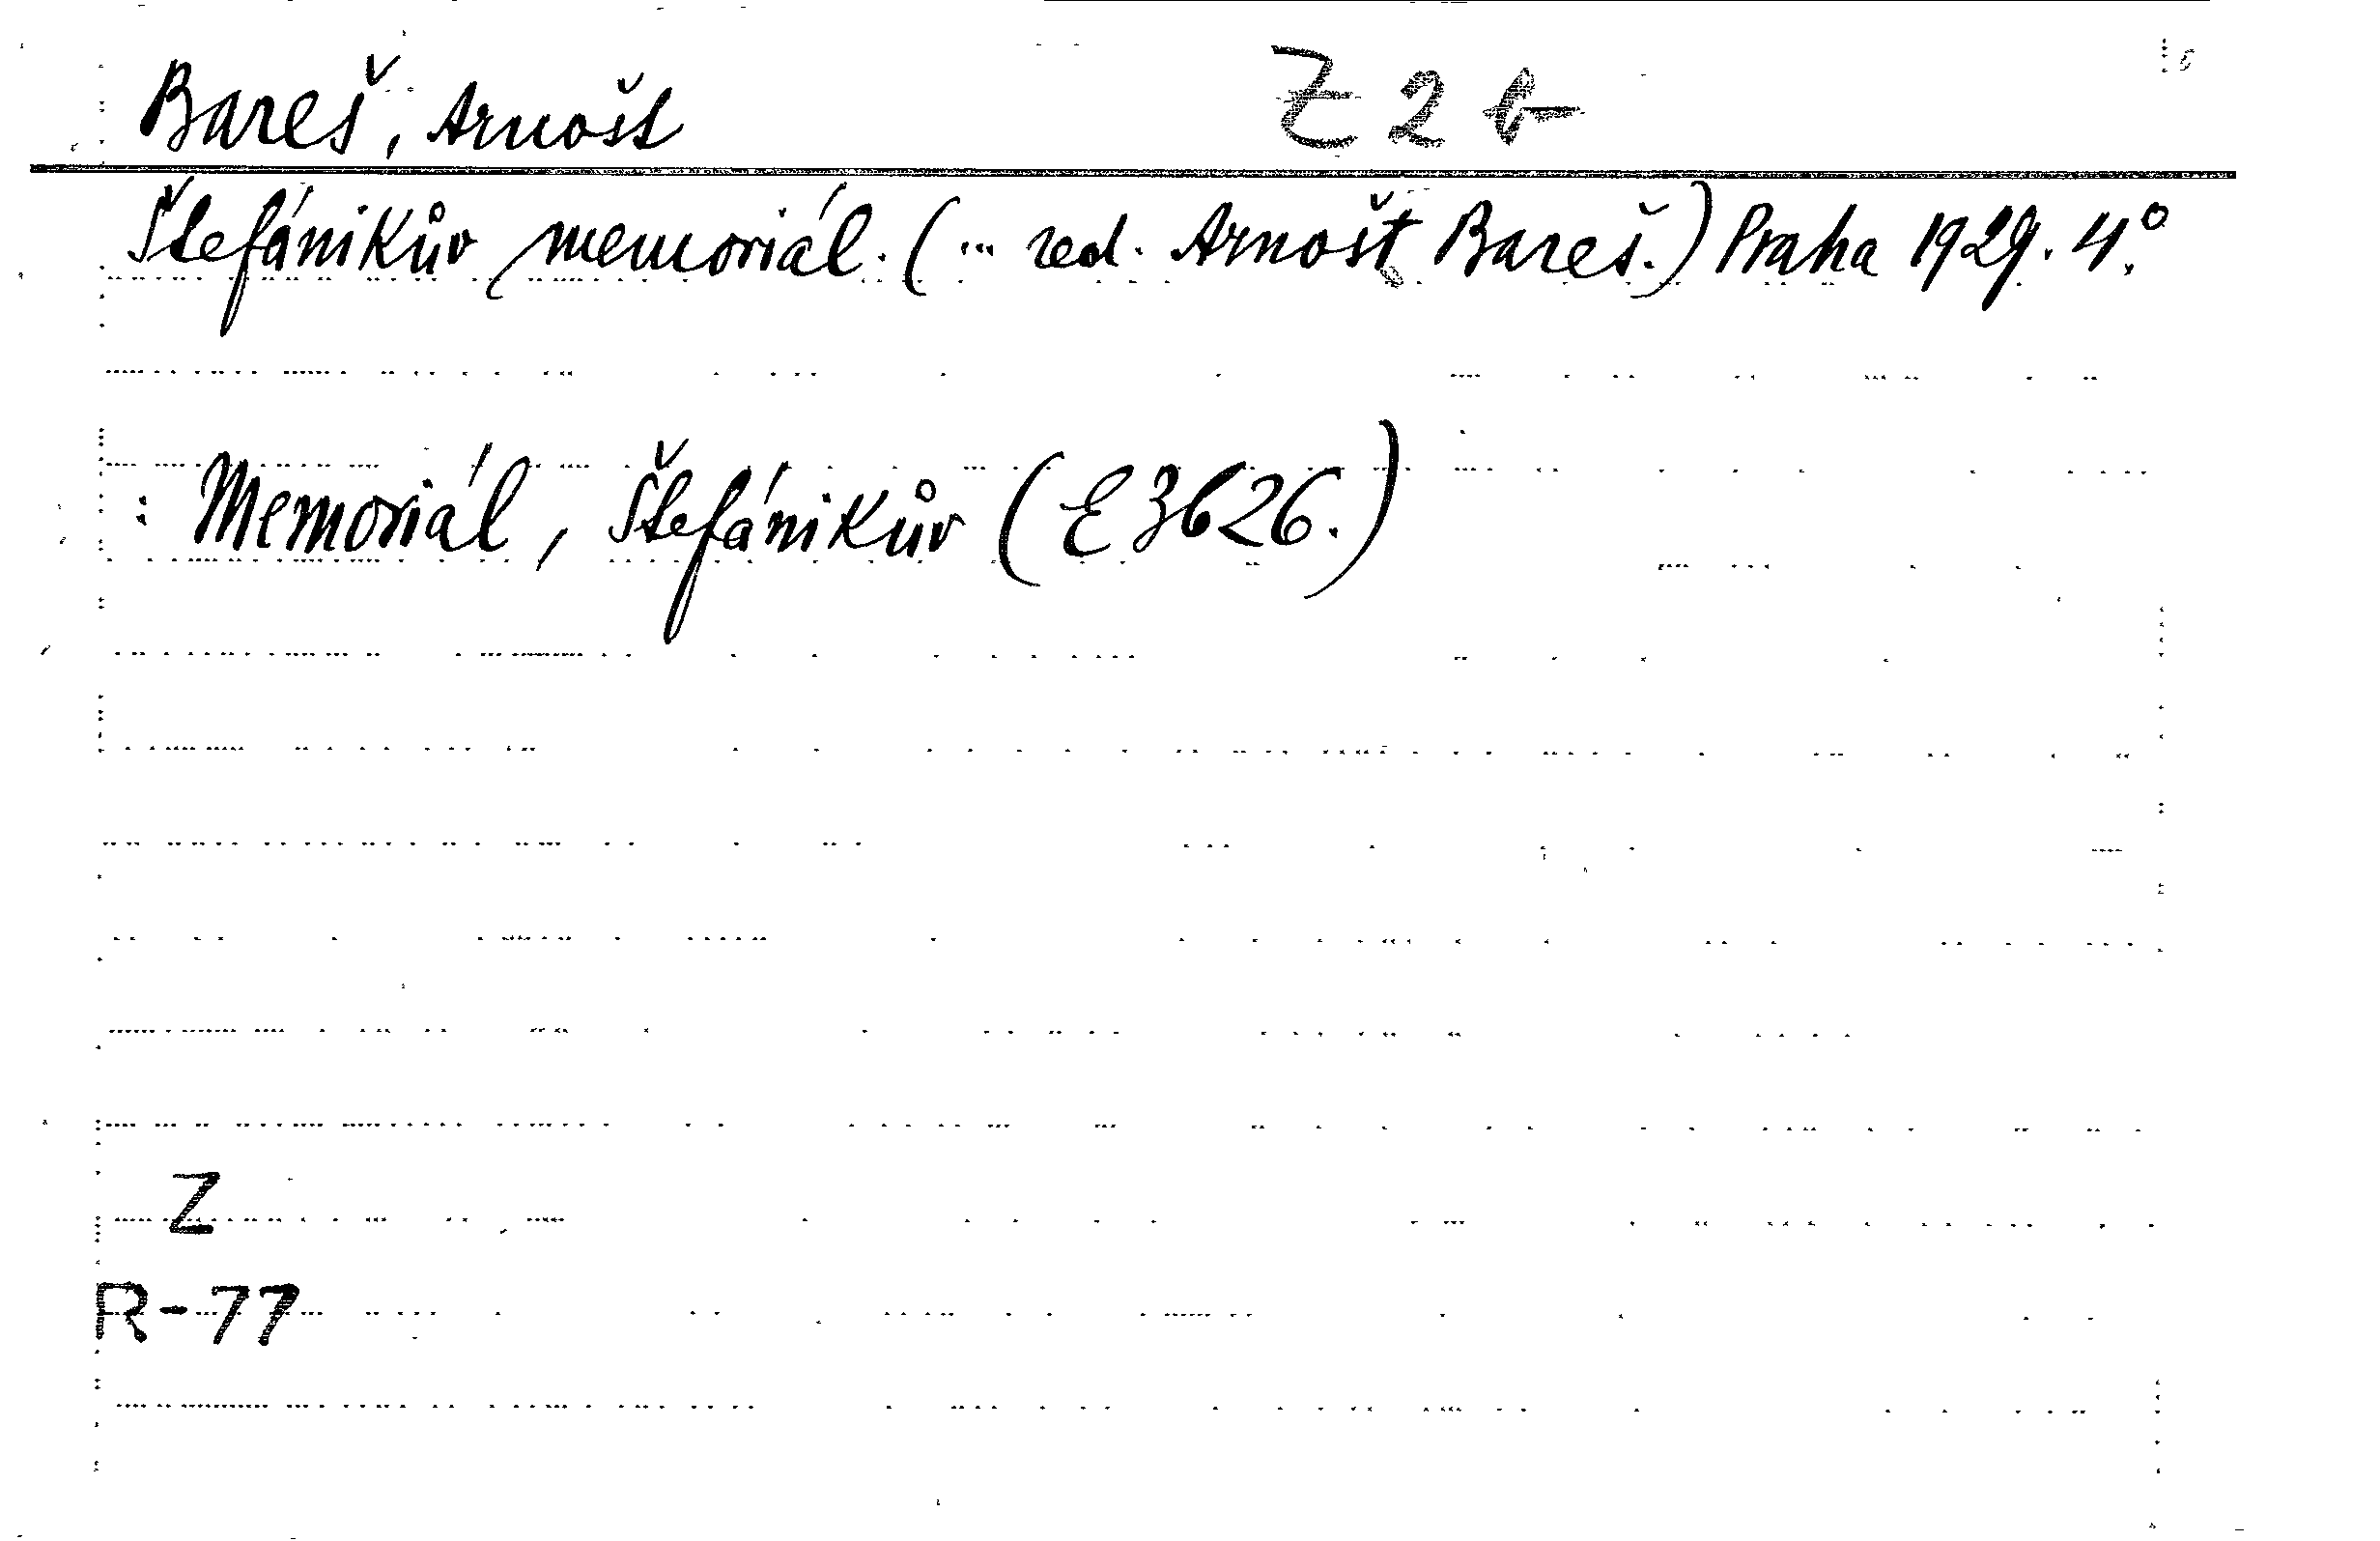 Bareš, Arnošt Z 2 b
Štefánikův memoriál. (... red. Arnošt Bareš.) Praha 1929. 4°.
: Memoriál, Štefánikův (E 3626.)
Z
R-77